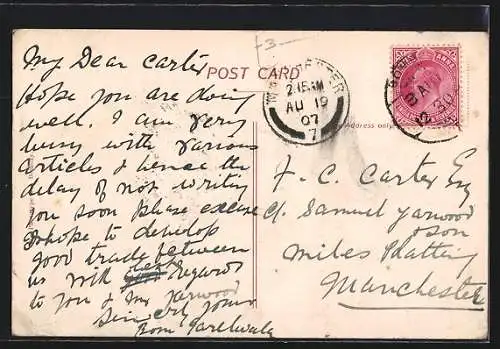 My Dear Carter
Hope you are doing
well I am very
busy with various
articles & hence the
delay of not writing
you soon please excuse
I hope to develop
good trade between
us with best Regards
to you & Mr Yarwood
Sincerely yours
-3-
POST CARD
MANCHESTER
2.15 AM
AU 19
07
7
Address only
ANNA
BOMBAY
F. C. Carter Esq
c/. Samuel Yarwood
& son
Miles Platting
Manchester